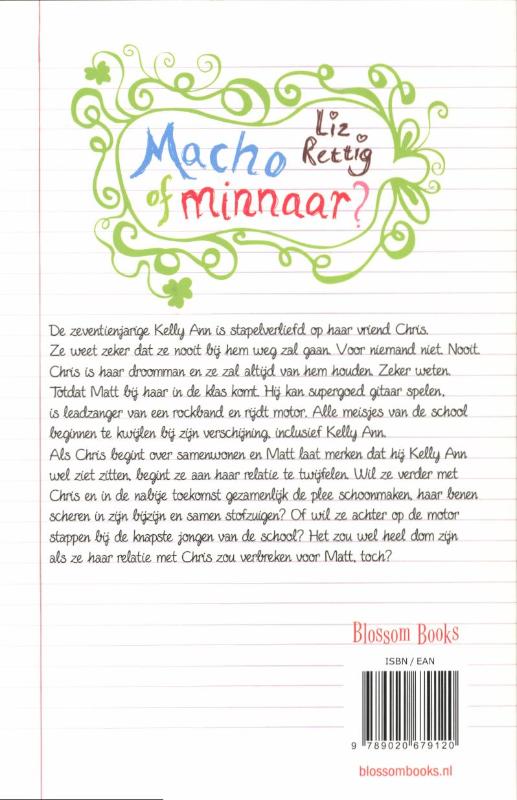 Liz
Rettig
Macho
of minnaar?
De zeventienjarige Kelly Ann is stapelverliefd op haar vriend Chris.
Ze weet zeker dat ze nooit bij hem weg zal gaan. Voor niemand niet. Nooit.
Chris is haar droomman en ze zal altijd van hem houden. Zeker weten.
Totdat Matt bij haar in de klas komt. Hij kan supergoed gitaar spelen,
is leadzanger van een rockband en rijdt motor. Alle meisjes van de school
beginnen te kwijlen bij zijn verschijning, inclusief Kelly Ann.
Als Chris begint over samenwonen en Matt laat merken dat hij Kelly Ann
wel ziet zitten, begint ze aan haar relatie te twijfelen. Wil ze verder met
Chris en in de nabije toekomst gezamenlijk de plee schoonmaken, haar benen
scheren in zijn bijzijn en samen stofzuigen? Of wil ze achter op de motor
stappen bij de knapste jongen van de school? Het zou wel heel dom zijn
als ze haar relatie met Chris zou verbreken voor Matt, toch?
Blossom Books
ISBN / EAN
9 789020 679120
blossombooks.nl